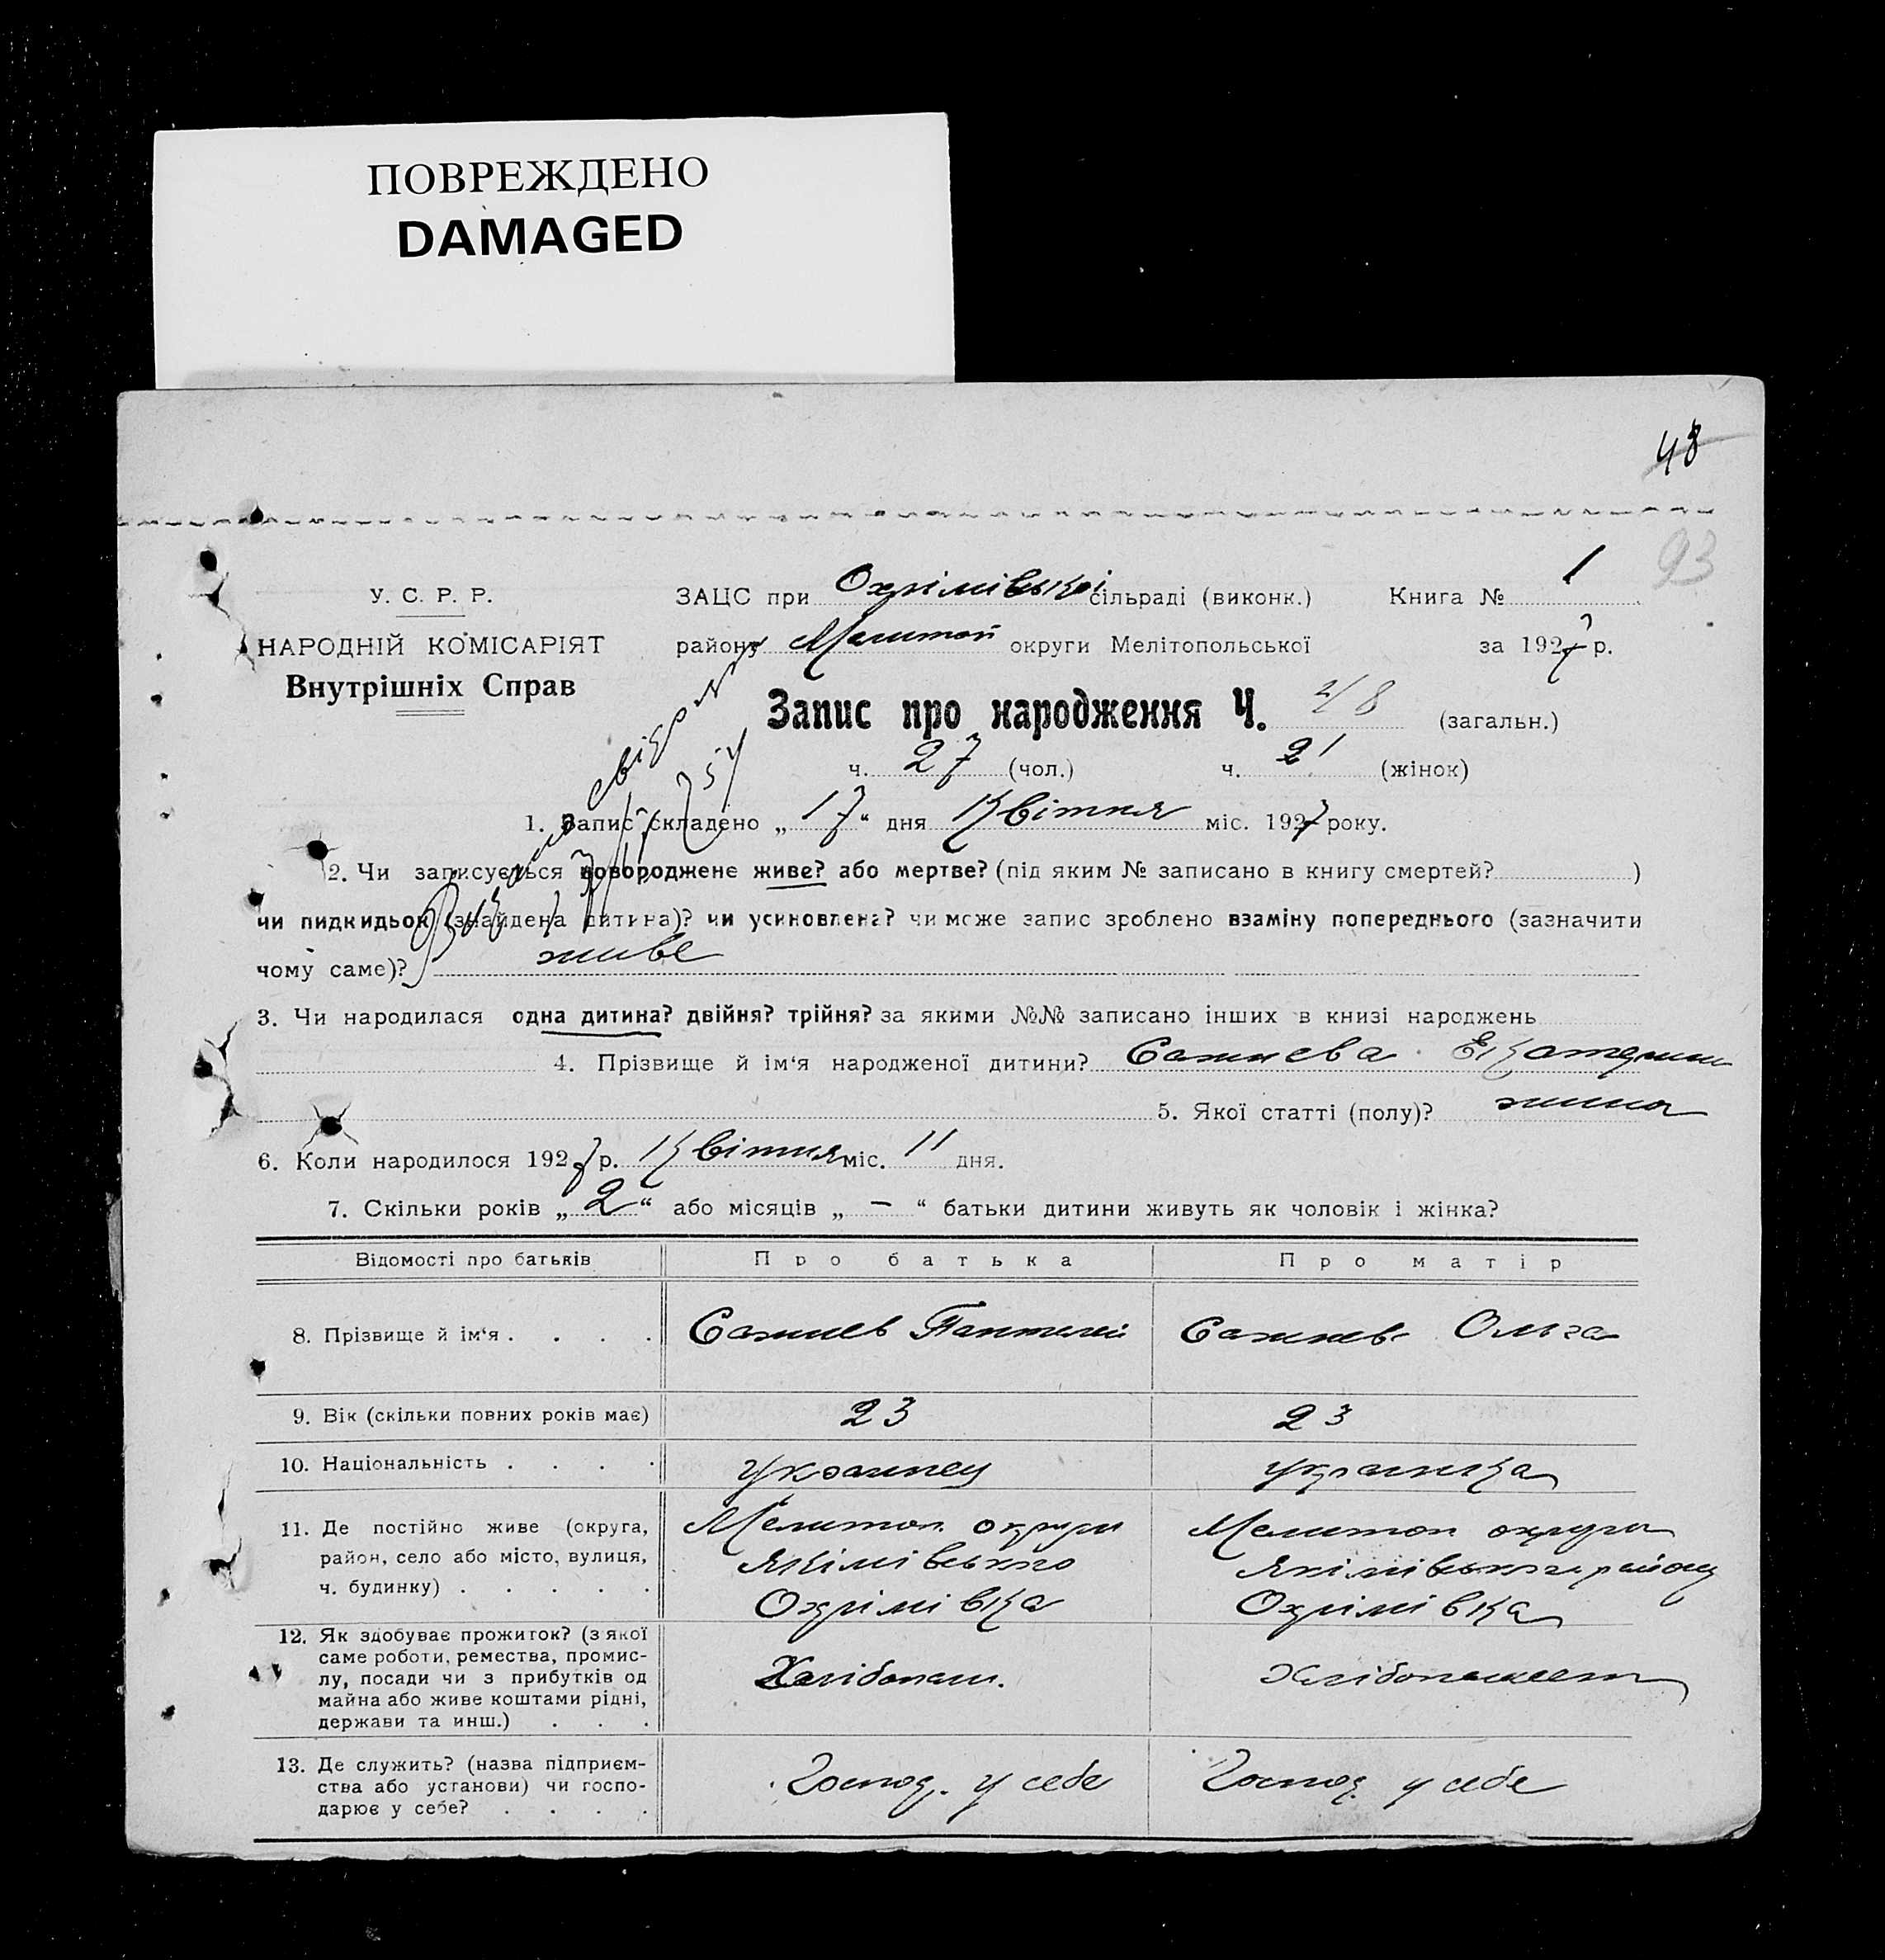 ПОВРЕЖДЕНО
DAMAGED
48
93
У. С. Р. Р.
ЗАЦС при Охрімівській сільраді (виконк.) Книга № 1
НАРОДНІЙ КОМІСАРІЯТ
району Мелитоп округи Мелітопольської за 1927 р.
Внутрішніх Справ
Запис про народження Ч. 48 (загальн.)
ч. 27 (чол.) ч. 21 (жінок)
1. Запис складено „17“ дня Квітня міс. 1927 року.
2. Чи записується новороджене живе? або мертве? (під яким № записано в книгу смертей? )
чи пидкидьок (знайдена дитина)? чи усиновлена? чи може запис зроблено взаміну попереднього (зазначити
чому саме)? живе
3. Чи народилася одна дитина? двійня? трійня? за якими №№ записано інших в книзі народжень
4. Прізвище й ім‘я народженої дитини? Сажнева Екатерина
5. Якої статті (полу)? жинка
6. Коли народилося 1927 р. Квітня міс. 11 дня.
7. Скільки років „2“ або місяців „—“ батьки дитини живуть як чоловік і жінка?
Відомості про батьків Про батька Про матір
8. Прізвище й ім‘я . . . . Сажнев Пантилей Сажнева Ольга
9. Вік (скільки повних років має) 23 23
10. Національність . . . . Украинец украинка
11. Де постійно живе (округа, Мелитоп. округи Мелитоп округи
район, село або місто, вулиця, Якімівського Якімівського району
ч. будинку) . . . . . Охрімівка Охрімівка
12. Як здобуває прожиток? (з якої
саме роботи, ремества, промис-
лу, посади чи з прибутків од Хлібопаш. Хлібопашест
майна або живе коштами рідні,
держави та инш.) . . .
13. Де служить? (назва підприєм-
ства або установи) чи госпо- Господ. у себе Господ. у себе
дарює у себе? . . . .